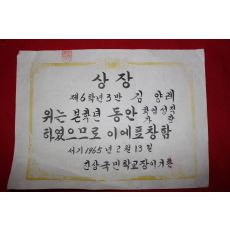 상장
제6학년 3반 김양례
위는 본학년 동안
하였으므로 이에 표창함
서기 1965년 2월 13일
국민학교장